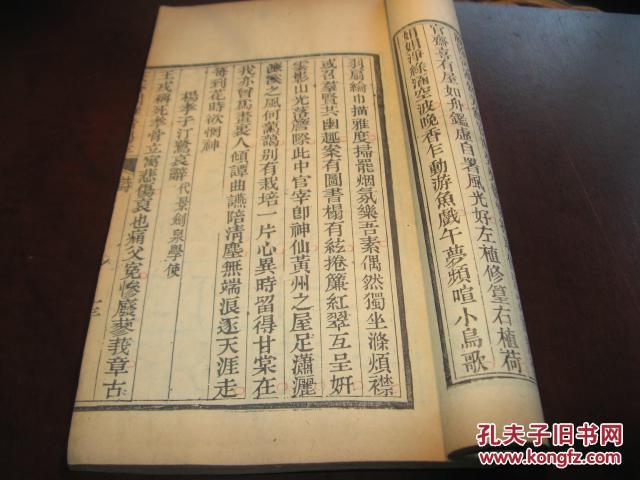 官齋喜有屋如舟鑑虛自署風光好左植修篁右植荷
娟娟淨綠涵空波晚香乍動游魚戲午夢頻喧小鳥歌
羽扇綸巾描雅度掃罷烟氛樂吾素偶然獨坐滌煩襟
或召羣賢共幽趣案有圖書榻有絃捲簾紅翠互呈妍
雲影山光落簷際此中官宰卽神仙黃州之屋足瀟灑
濂溪之風何藹藹別有栽培一片心異時留得甘棠在
我亦曾爲畫裏人傾譚曲讌陪淸塵無端浪逐天涯走
每到花時欲愴神
楊李子汀鷺哀辭代景劍泉學使
王戎稱死孝骨立寓悲傷哀也痛父冤慘廢蓼莪章古
詩
孔夫子旧书网
www.kongfz.com